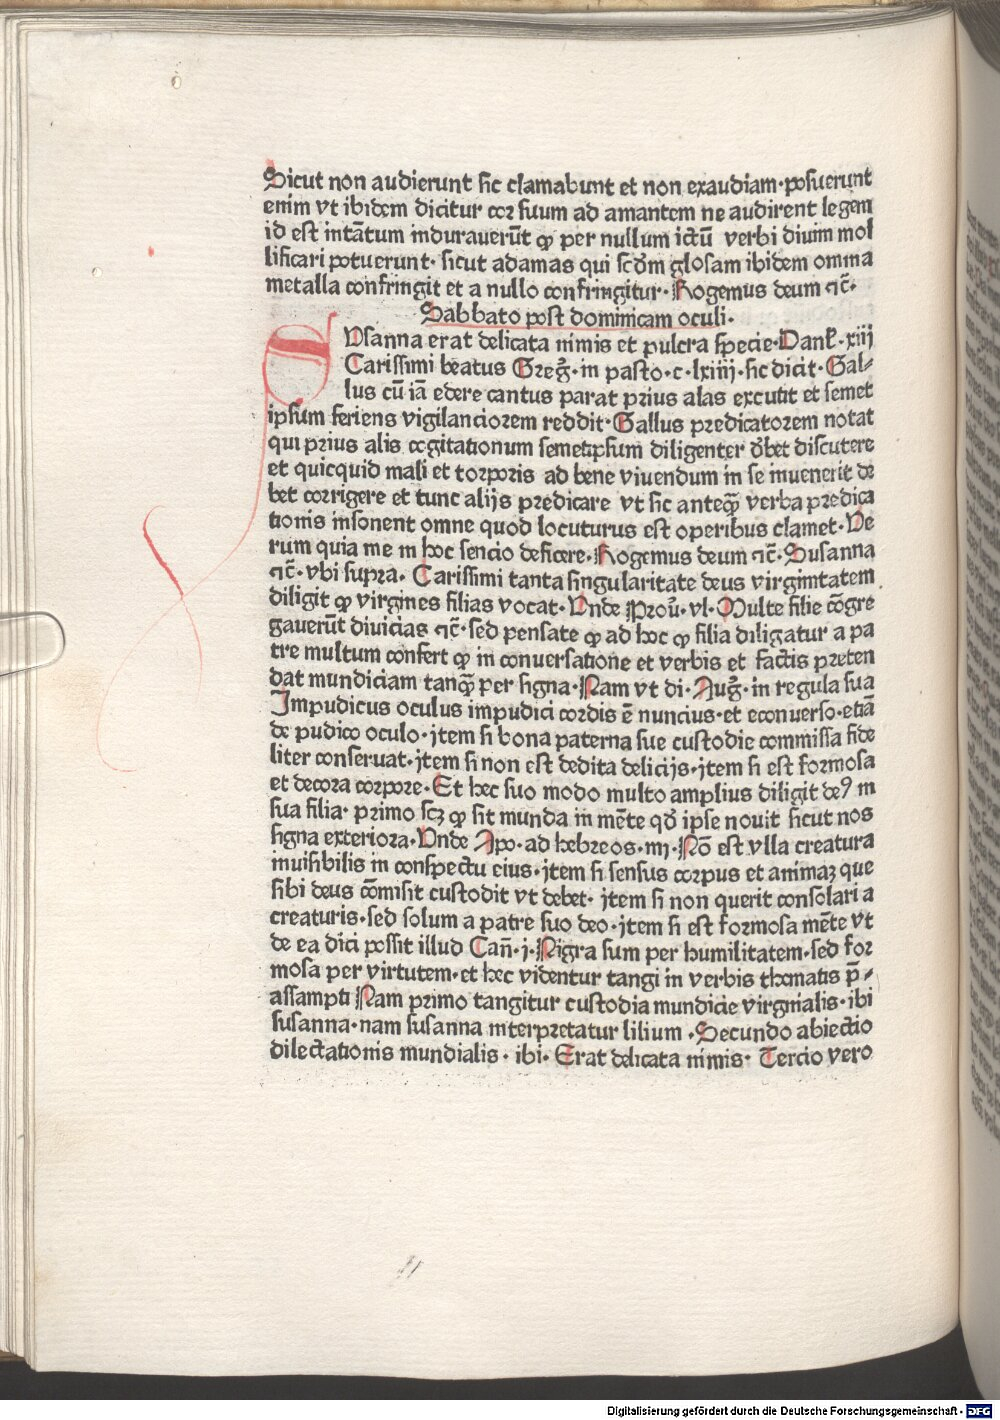 Sicut non audierunt sic clamabunt et non exaudiam·posuerunt
enim vt ibidem dicitur cor suum ad amantem ne audirent legem
id est intãtum indurauerũt ꝙ per nullum ictũ verbi diuini mol
lificari potuerunt· sicut adamas qui scd̃m glosam ibidem omnia
metalla confringit et a nullo confringitur· Rogemus deum ⁊c̃·
Sabbato post dominicam oculi·
SVsanna erat delicata nimis et pulcra specie·Daniel·xiij
Carissimi beatus Greg̃· in pasto·c·lxiiij·sic dicit·Gal⸗
lus cũ iã edere cantus parat prius alas excutit et semet
ipsum feriens vigilanciorem reddit·Gallus predicatorem notat
qui prius alis cogitationum semetipsum diligenter d̃bet discutere
et quicquid mali et torporis ad bene viuendum in se inuenerit de
bet corrigere et tunc alijs predicare vt sic anteq̃ verba predica
tionis insonent omne quod locuturus est operibus clamet·Ve
rum quia me in hoc sencio deficere·Rogemus deum ⁊c̃·Susanna
⁊c̃·vbi supra· Carissimi tanta singularitate deus virginitatem
diligit ꝙ virgines filias vocat·Vnd̃e Prou̇·vl·Multe filie cõgre
gauerũt diuicias ⁊c̃·sed pensate ꝙ ad hoc ꝙ filia diligatur a pa
tre multum confert ꝙ in conuersatione et verbis et factis preten
dat mundiciam tanq̃ per signa·Nam vt di·Aug̃·in regula sua
Impudicus oculus impudici cordis ẽ nuncius·et econuerso·etiã
de pudico oculo·jtem si bona paterna sue custodie commissa fide
liter conseruat·jtem si non est dedita delicijs·jtem si est formosa
et decora corpore·Et hec suo modo multo amplius diligit deꝰ in
sua filia· primo scꝫ ꝙ sit munda in mẽte qd̃ ipse nouit sicut nos
signa exteriora·Vnde Apo·ad hebreos·iiij·Nõ est vlla creatura
inuisibilis in conspectu eius·jtem si sensus corpus et animaꝫ que
sibi deus cõmisit custodit vt debet· jtem si non querit consolari a
creaturis·sed solum a patre suo deo·jtem si est formosa mẽte vt
de ea dici possit illud Cañ·j·Nigra sum per humilitatem·sed for
mosa per virtutem·et hec videntur tangi in verbis thematis p̃⸗
assampti Nam primo tangitur custodia mundicie virginalis·ibi
susanna·nam susanna interpretatur lilium·Secundo abiectio
dilectationis mundialis· ibi·Erat delicata nimis· Tercio vero
Digitalisierung gefördert durch die Deutsche Forschungsgemeinschaft - DFG